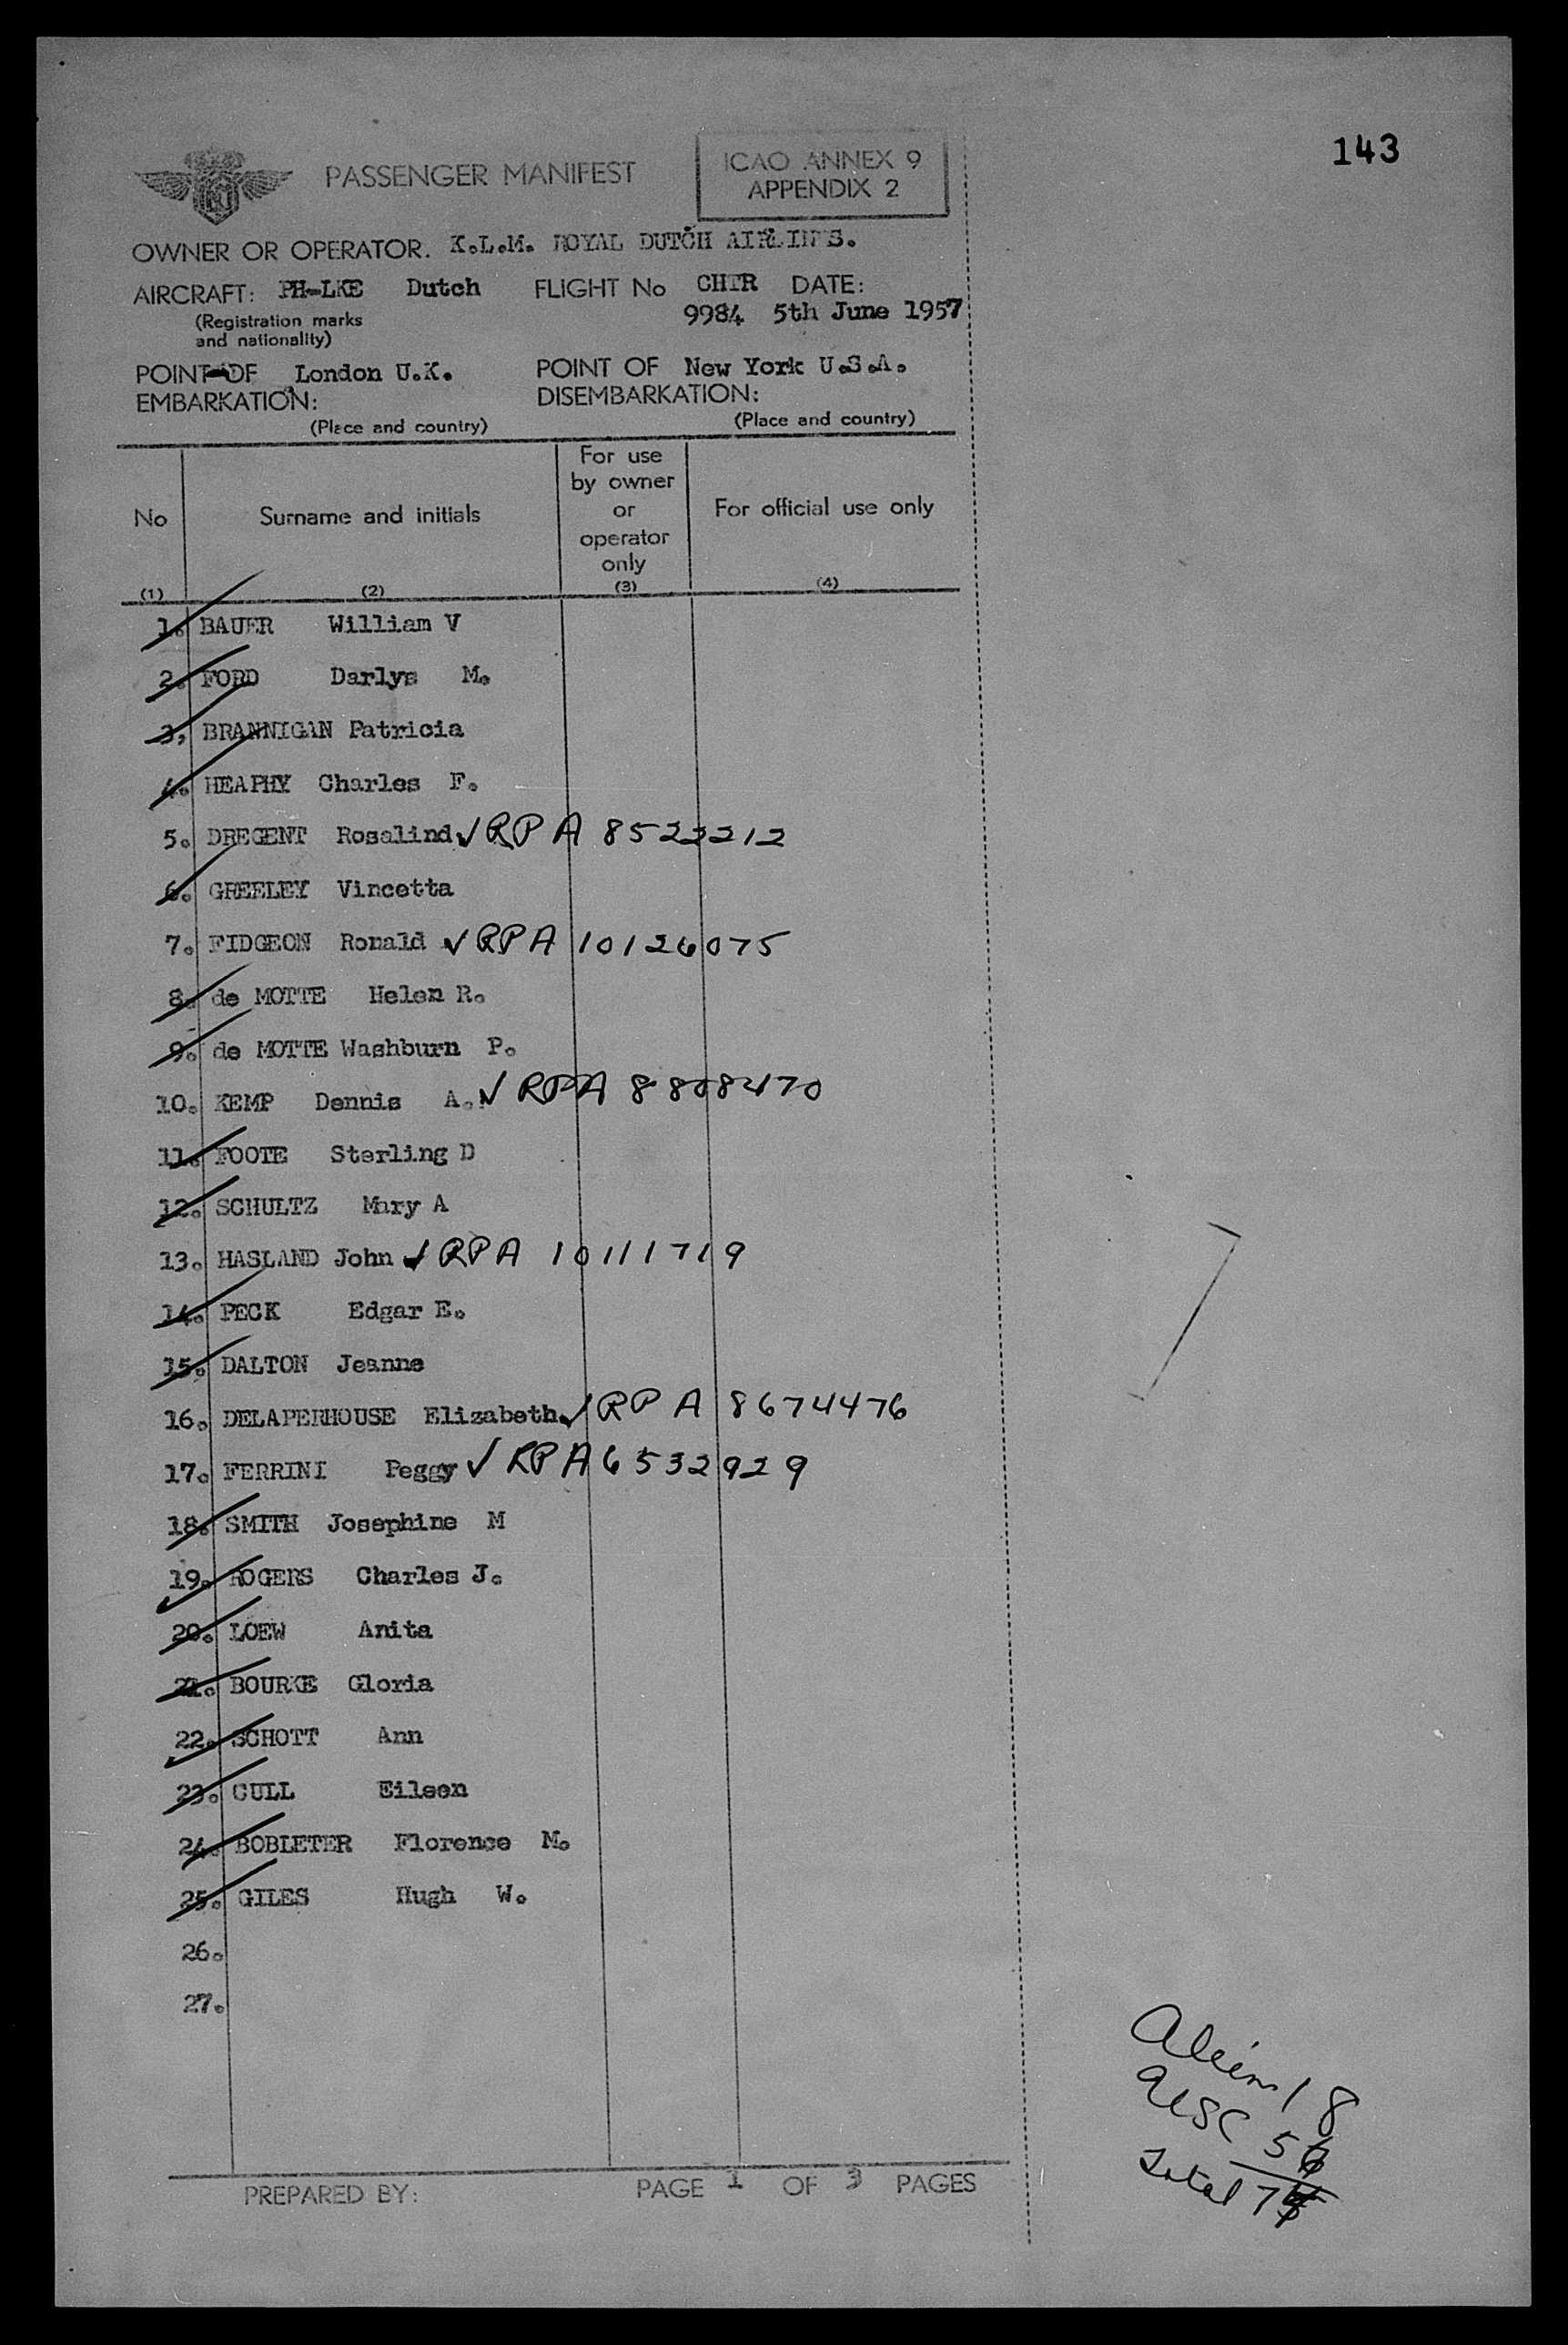 143
PASSENGER MANIFEST
ICAO ANNEX 9
APPENDIX 2
OWNER OR OPERATOR. K.L.M. ROYAL DUTCH AIRLINES.
AIRCRAFT: PH-LKE Dutch FLIGHT No CHTR DATE:
9984 5th June 1957
(Registration marks
and nationality)
POINT OF London U.K. POINT OF New York U.S.A.
EMBARKATION: DISEMBARKATION:
(Place and country) (Place and country)
No Surname and initials For use by owner or operator only For official use only
(1) (2) (3) (4)
1. BAUER William V
2. FORD Darlys M.
3, BRANNIGAN Patricia
4. HEAPHY Charles F.
5. DREGENT Rosalind ✓ RPA 8522212
6. GREELEY Vincetta
7. FIDGEON Ronald ✓ RPA 10126075
8. de MOTTE Helen R.
9. de MOTTE Washburn P.
10. KEMP Dennis A. ✓ RPA 8808470
11. FOOTE Sterling D
12. SCHULTZ Mary A
13. HASLAND John ✓ RPA 10111719
14. PECK Edgar E.
15. DALTON Jeanne
16. DELAPERHOUSE Elizabeth. ✓ RPA 8674476
17. FERRINI Peggy ✓ RPA 6532929
18. SMITH Josephine M
19. ROGERS Charles J.
20. LOEW Anita
21. BOURKE Gloria
22. SCHOTT Ann
23. CULL Eileen
24. BOBLETER Florence M.
25. GILES Hugh W.
26.
27.
Alien 18
USC 56
Total 74
PREPARED BY: PAGE 1 OF 3 PAGES